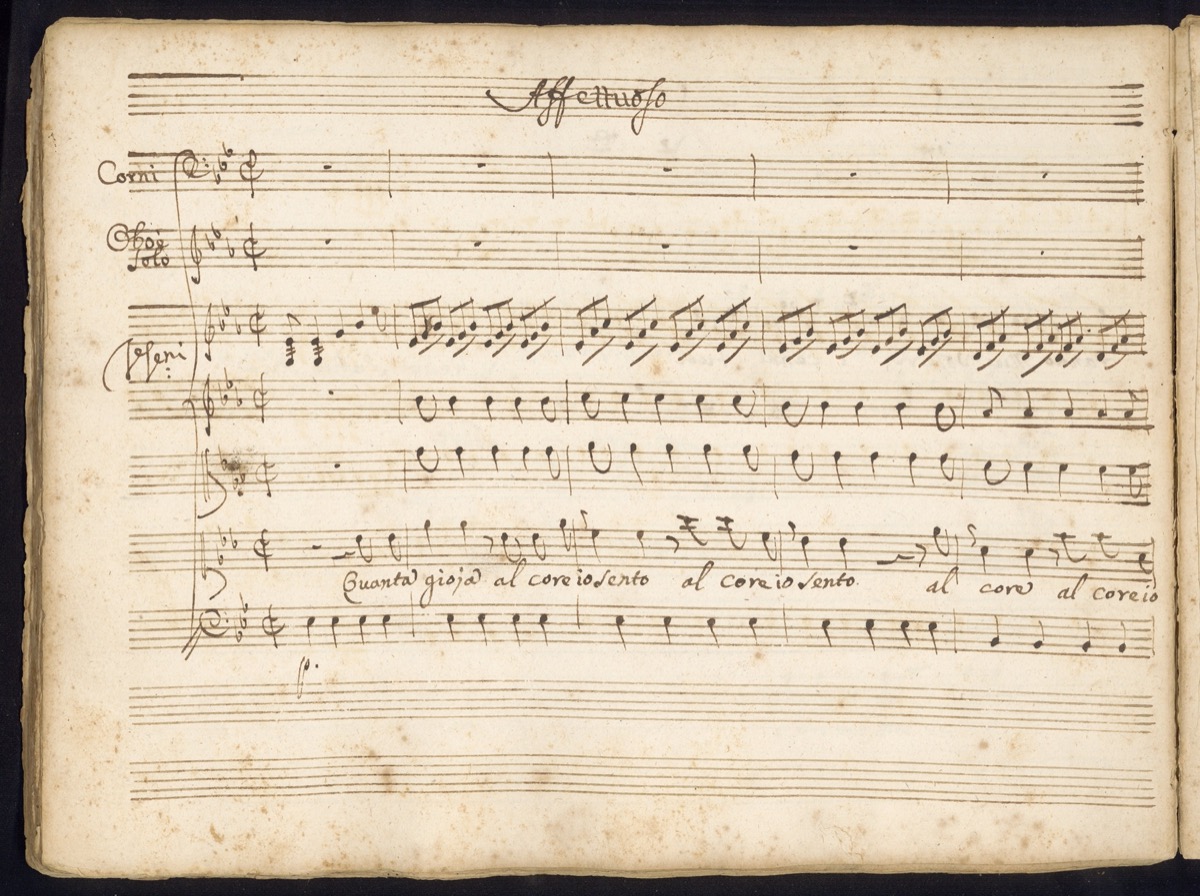 Affettuoso
Corni
Oboè
solo
Quanta gioja al core io sento al core io sento al core al core io
p.